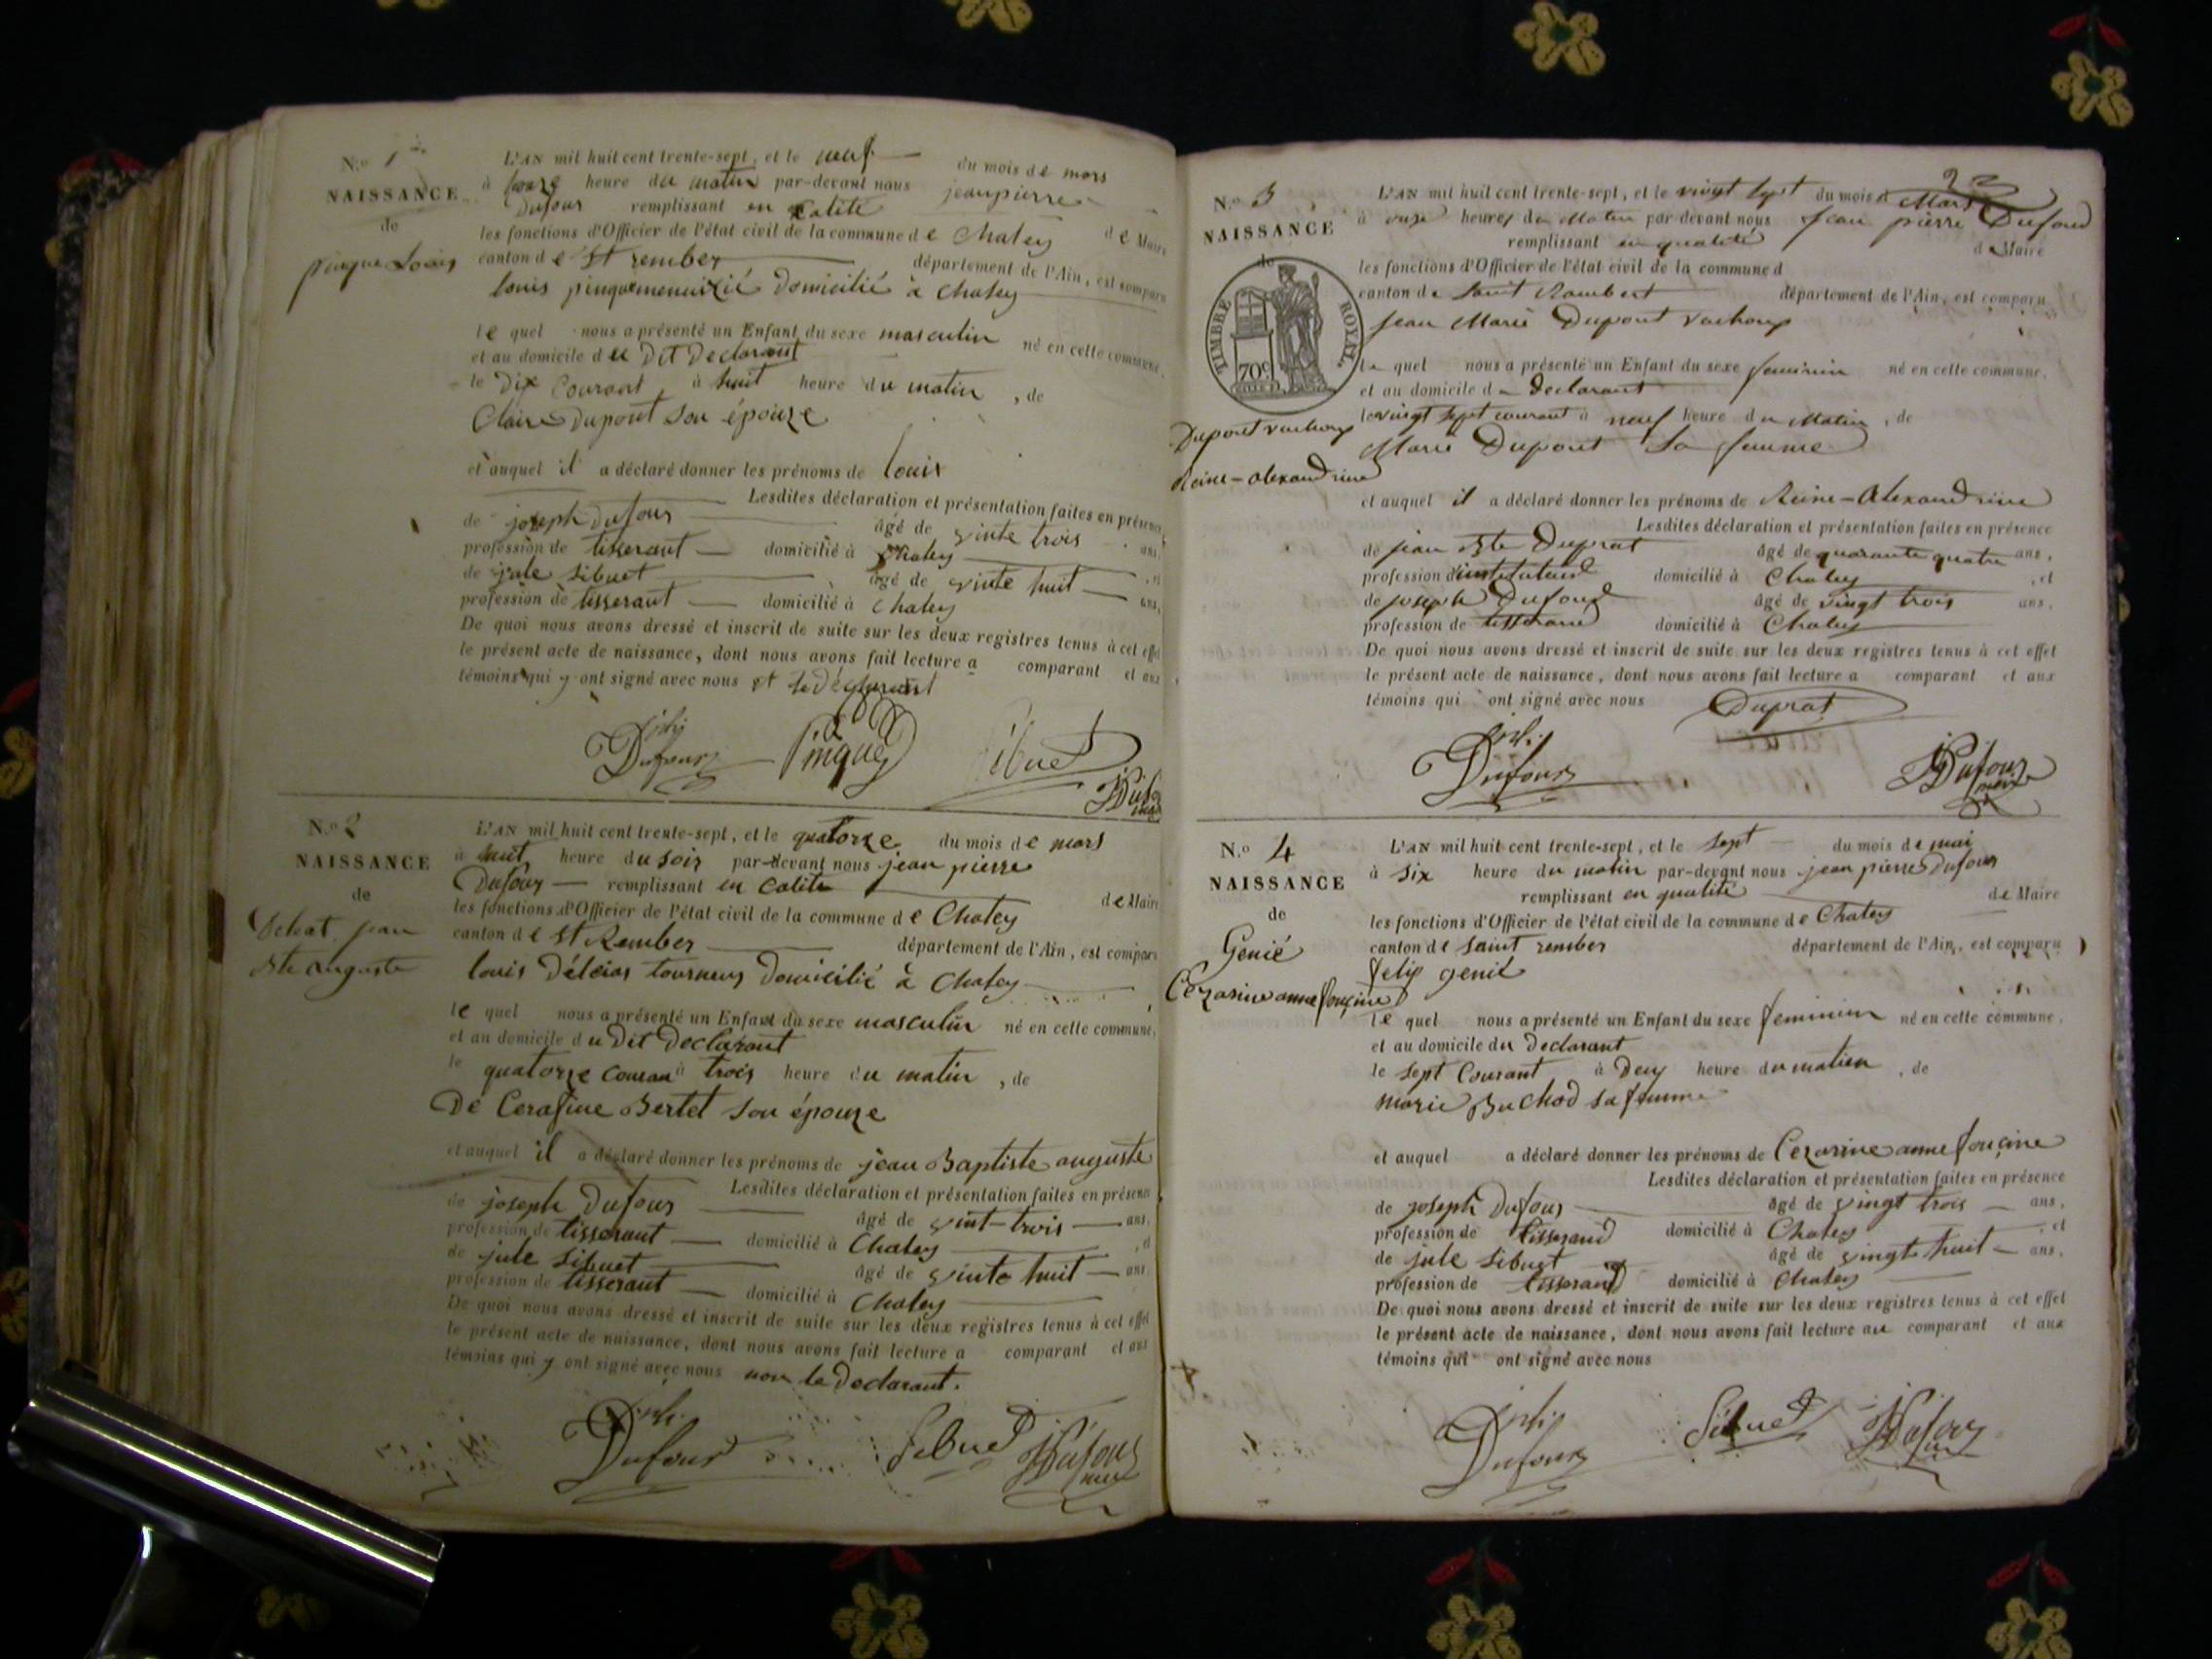 N.º 1
NAISSANCE
de
pingue Louis
L'AN mil huit cent trente-sept, et le neuf du mois de mars
à heure du matin par-devant nous jean pierre
Dufour remplissant en calité de Maire
les fonctions d'Officier de l'état civil de la commune de Chaley
canton de St rember département de l'Ain, est comparu
louis pingue menuizié Domicilié à Chaley
le quel nous a présenté un Enfant du sexe masculin né en cette commune,
et au domicile du Dit Declarant
le Dix Courant à huit heure du matin, de
Claire Dupont Son épouze
et auquel il a déclaré donner les prénoms de louis
Lesdites déclaration et présentation faites en présence
de joseph Dufour âgé de vinte trois ans,
profession de tisserant domicilié à Chaley, et
de jule Sibuet âgé de vinte huit ans,
profession de tisserant domicilié à Chaley
De quoi nous avons dressé et inscrit de suite sur les deux registres tenus à cet effet
le présent acte de naissance, dont nous avons fait lecture a comparant et aux
témoins qui y ont signé avec nous et le déclarant
Dufour Pingue Sibuet
N.º 2
NAISSANCE
de
jean
Bte auguste
L'AN mil huit cent trente-sept, et le quatorze du mois de mars
à huit heure du soir par-devant nous jean pierre
Dufour remplissant en Calité de Maire
les fonctions d'Officier de l'état civil de la commune de Chaley
canton de St Rember département de l'Ain, est comparu
louis tourneur Domicilié à Chaley
le quel nous a présenté un Enfant du sexe masculin né en cette commune,
et au domicile du Dit Declarant
le quatorze Couran à trois heure du matin, de
De Cerafine Bertet Son épouze
et auquel il a déclaré donner les prénoms de jean Baptiste auguste
Lesdites déclaration et présentation faites en présence
de joseph Dufour âgé de vint-trois ans,
profession de tisserant domicilié à Chaley, et
de jule Sibuet âgé de vinte huit ans,
profession de tisserant domicilié à Chaley
De quoi nous avons dressé et inscrit de suite sur les deux registres tenus à cet effet
le présent acte de naissance, dont nous avons fait lecture a comparant et aux
témoins qui y ont signé avec nous non le Declarant.
Dufour Sibuet JPDufour
N.º 3
NAISSANCE
de
TIMBRE ROYAL.
70c
Dupont vachoux
Reine-alexandrine
L'AN mil huit cent trente-sept, et le vingt sept du mois d Mars
à onze heures du Matin par-devant nous Jean pierre Dufour
remplissant en qualité de Maire
les fonctions d'Officier de l'état civil de la commune d
canton de Saint Rambert département de l'Ain, est comparu
Jean Marie Dupont vachoux
le quel nous a présenté un Enfant du sexe feminin né en cette commune,
et au domicile du Declarant
le vingt sept courant à neuf heure du Matin, de
Marie Dupont Sa femme
et auquel il a déclaré donner les prénoms de Reine-Alexandrine
Lesdites déclaration et présentation faites en présence
de jean Bte Duprat âgé de quarante quatre ans,
profession d'instituteur domicilié à Chaley, et
de joseph Dufour âgé de vingt trois ans,
profession de tisserand domicilié à Chaley
De quoi nous avons dressé et inscrit de suite sur les deux registres tenus à cet effet
le présent acte de naissance, dont nous avons fait lecture a comparant et aux
témoins qui ont signé avec nous
Duprat
Dufour JPDufour
N.º 4
NAISSANCE
de
Genié
Cezarine anne foncine
L'AN mil huit cent trente-sept, et le sept du mois de mai
à six heure du matin par-devant nous jean pierre Dufour
remplissant en qualité de Maire
les fonctions d'Officier de l'état civil de la commune de Chaley
canton de Saint rember département de l'Ain, est comparu
felix genié
le quel nous a présenté un Enfant du sexe feminin né en cette commune,
et au domicile du Declarant
le Sept Courant à Deux heure du matin, de
marie Buchod Sa femme
et auquel a déclaré donner les prénoms de Cezarine anne foncine
Lesdites déclaration et présentation faites en présence
de joseph Dufour âgé de vingt trois ans,
profession de tisserand domicilié à Chaley, et
de jule Sibuet âgé de vingt huit ans,
profession de tisserand domicilié à Chaley
De quoi nous avons dressé et inscrit de suite sur les deux registres tenus à cet effet
le présent acte de naissance, dont nous avons fait lecture au comparant et aux
témoins qui ont signé avec nous
Dufour Sibuet JPDufour